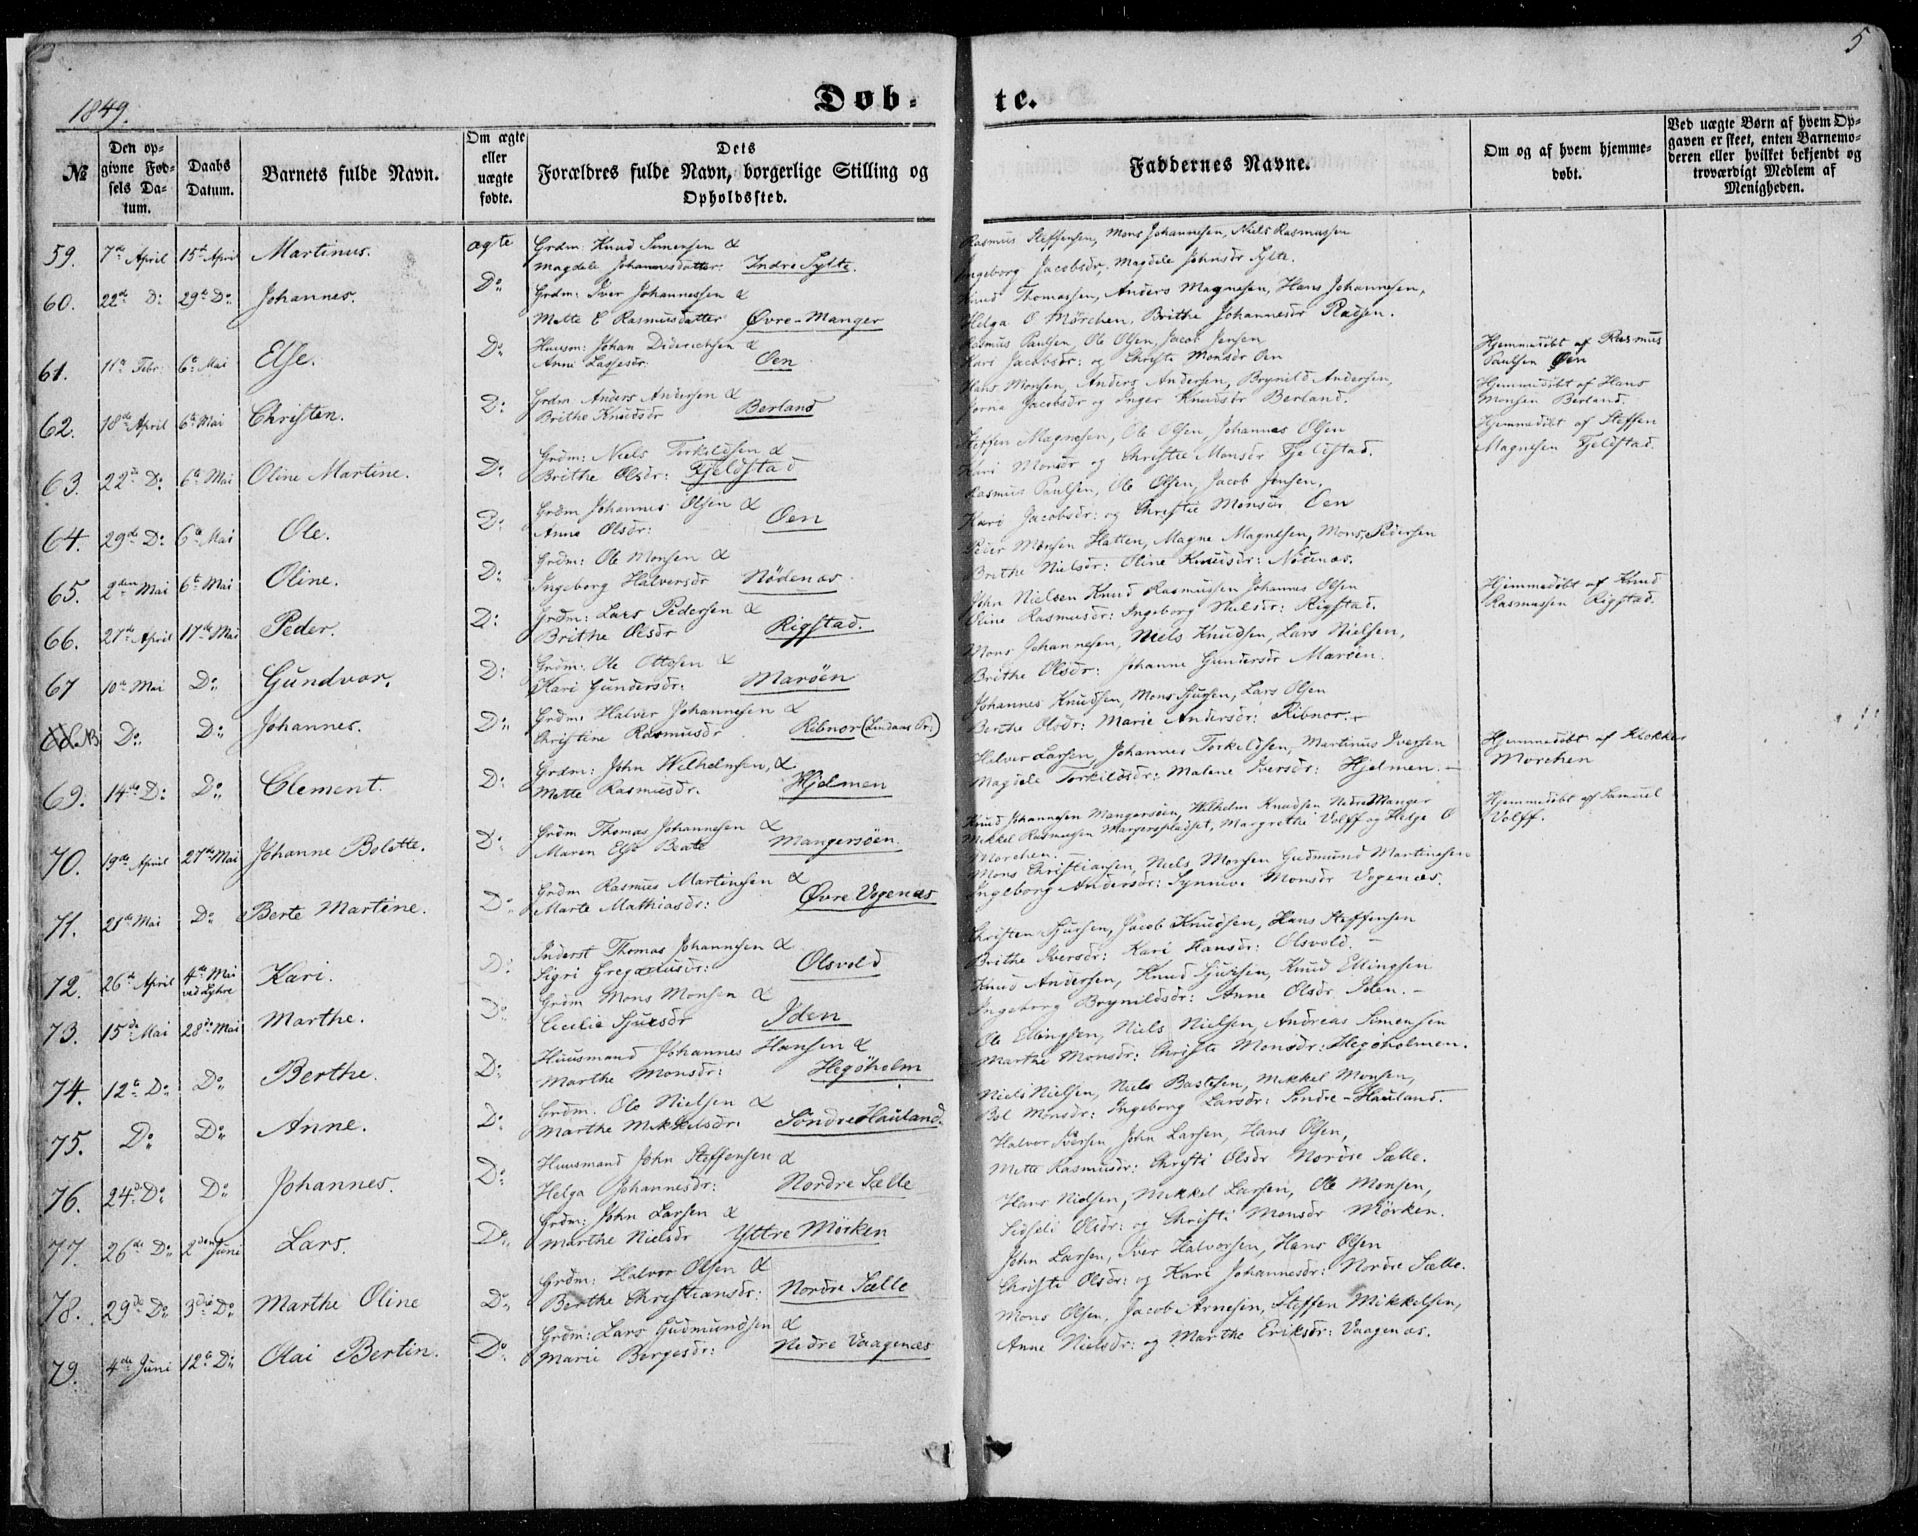 1849.
Døb-
te.
5
№
Den op-
givne Fød-
sels Da-
tum.
Daabs
Datum.
Barnets fulde Navn.
Om ægte
eller
uægte
fødte.
Dets
Forældres fulde Navn, borgerlige Stilling og
Opholdssted.
Faddernes Navne.
Om og af hvem hjemme-
døbt.
Ved uægte Børn af hvem Op-
gaven er skeet, enten Barnemo-
deren eller hvilket bekjendt og
troværdigt Medlem af
Menigheden.
59. 7de April 15de April Martinus. ægte Grdm: Knud Simensen &
Magdele Johannesdatter. Indre Sylte.
Rasmus Steffensen, Mons Johannesen, Niels Rasmussen
Ingeborg Jacobsdr, Magdele Johnsdr Sylte.
60. 22de D: 29de Do: Johannes. Do Grdm: Iver Johannessen &
Mette E Rasmusdatter Øvre-Manger
Knud Thomassen, Anders Magnesen, Hans Johannesen,
Helga O Mørchen, Brithe Johannesdr Pladsen.
61. 11te Febr: 6te Mai Else. Do Huusm: Johan Diderichsen &
Anne Lassesdr: Øen
Rasmus Paulsen, Ole Olsen, Jacob Jensen
Kari Jacobsdr: og Christi Monsdr Øen
Hjemmedøbt af Rasmus
Paulsen Øen
62. 18de April 6te Mai Christen. D: Grdm Anders Andersen &
Brithe Knudsdr Berland
Hans Monsen, Anders Andersen, Brynild Andersen,
Jorna Jacobsdr og Inger Knudsdr Berland.
Hjemmedøbt af Hans
Monsen Berland.
63. 22de Do 6te Mai Oline Martine. D: Grdm: Niels Torkildsen &
Brithe Olsdr: Fjeldstad
Steffen Magnesen, Ole Olsen Johannes Olsen
Kari Monsdr og Christie Monsdr Fjeldstad.
Hjemmedøbt af Steffen
Magnesen Fjeldstad.
64. 29de Do 6te Mai Ole. D: Grdm Johannes Olsen &
Anne Olsdr: Øen
Rasmus Paulsen, Ole Olsen, Jacob Jensen,
Kari Jacobsdr: og Christie Monsdr Øen
65. 2den Mai 6te Mai Oline. D: Grdm: Ole Monsen &
Ingeborg Halversdr Nødenæs.
Peder Monsen Hatten, Magne Magnesen, Mons Pedersen
Brithe Nielsdr: Oline Knudsdr: Nødenæs.
66. 27de April 17de Mai Peder. D: Grdm: Lars Pedersen &
Brithe Olsdr Rigstad.
John Nielsen Knud Rasmussen Johannes Olsen
Stine Rasmusdr: Ingeborg Nielsdr: Rigstad.
Hjemmedøbt af Knud
Rasmussen Rigstad.
67 10de Mai Do: Gundvor. D: Grdm: Ole Ottesen &
Kari Gundersdr: Marøen
Mons Johannesen, Niels Knudsen, Lars Nielsen,
Brithe Olsdr: Johanne Gundersdr Marøen.
68. NB Do: Do Johannes. D: Grdm: Halver Johannesen &
Christine Rasmusdr Ribnor (Lindaas Pr:)
Johannes Knudsen, Mons Sjursen, Lars Olsen
Berthe Olsdr: Marie Andersdr: Ribnor.
69. 14de D: Do: Clement. D: Grdm: John Wilhelmsen, &
Mette Rasmusdr. Hjelmen
Halver Larsen, Johannes Torkeldsen, Martinus Iversen
Magdele Torkildsdr: Malene Iversdr: Hjelmen.
Hjemmedøbt af Klokker
Mørchen
70. 19de April 27de Mai Johanne Bolette. D: Grdm Thomas Johannesen &
Maren Else Beate Mangersøen.
Knud Johannesen Mangersøen, Wilhelm Knudsen Nedre Manger
Mikkel Rasmusen Mangerspladset, Margrethe Volff og Helje O
Mørchen.
Hjemmedøbt af Samuel
Volff.
71. 21de Mai Do Berte Martine. Do Grdm Rasmus Martinsen &
Marte Mathiasdr: Øvre Vogenæs
Mons Christiansen, Niels Monsen Gudmund Martinesen
Ingeborg Andersdr: Synneve Monsdr Vogenæs.
72. 26de April 4de Mai
ved Lykre Kari. D: Inderst Thomas Johannesen &
Sigri Gregoriusdr: Olsvold
Christen Sjursen, Jacob Knudsen, Hans Steffensen
Brithe Iversdr: Kari Hansdr: Olsvold.
73. 15de Mai 28de Mai Marthe. Do Grdm Mons Monsen &
Cecilie Sjursdr Iden
Knud Andersen, Knud Sjursen, Knud Ellingsen
Ingeborg Brynildsdr: Anne Olsdr Iden.
74. 12te Do: Do: Berthe. D: Huusmand Johannes Hansen &
Marthe Monsdr: Hegøholm
Ole Ellingsen, Niels Nielsen, Andreas Simensen
Marthe Monsdr: Christi Monsdr: Hegøholmen.
75. Do: Do: Anne. D: Grdm. Ole Nielsen &
Marthe Mikkelsdr. Søndre Hauland.
Niels Nielsen, Niels Bastesen, Mikkel Monsen,
Bol Monsdr: Ingeborg Larsdr: Søndre-Hauland.
76. 24de Do: Do: Johannes. Do: Huusmand John Steffensen &
Helga Johannesdr: Nordre Sælle
Halvor Iversen John Larsen, Hans Olsen,
Mette Rasmusdr: Christi Olsdr Nordre Sælle.
77. 26de Do: 2den Juni Lars. Do: Grdm: John Larsen &
Marthe Nielsdr Yttre Mörken
Hans Nielsen, Mikkel Larsen, Ole Monsen,
Sidseli Olsdr: og Christi Monsdr Mörken.
78. 29de Do: 3die Do: Marthe Oline Do: Grdm: Halvor Olsen &
Berthe Christiansdr: Nordre Sælle
John Larsen, Iver Halvorsen, Hans Olsen
Christi Olsdr: og Kari Johannesdr: Nordre Sælle.
79. 4de Juni 12te Do: Olai Bertin. Do: Grdm: Lars Gudmundsen &
Marie Bergesdr: Nedre Vaagenæs
Mons Olsen, Jacob Arnesen, Steffen Mikkelsen,
Anne Nielsdr: og Marthe Eriksdr: Vaagenæs.